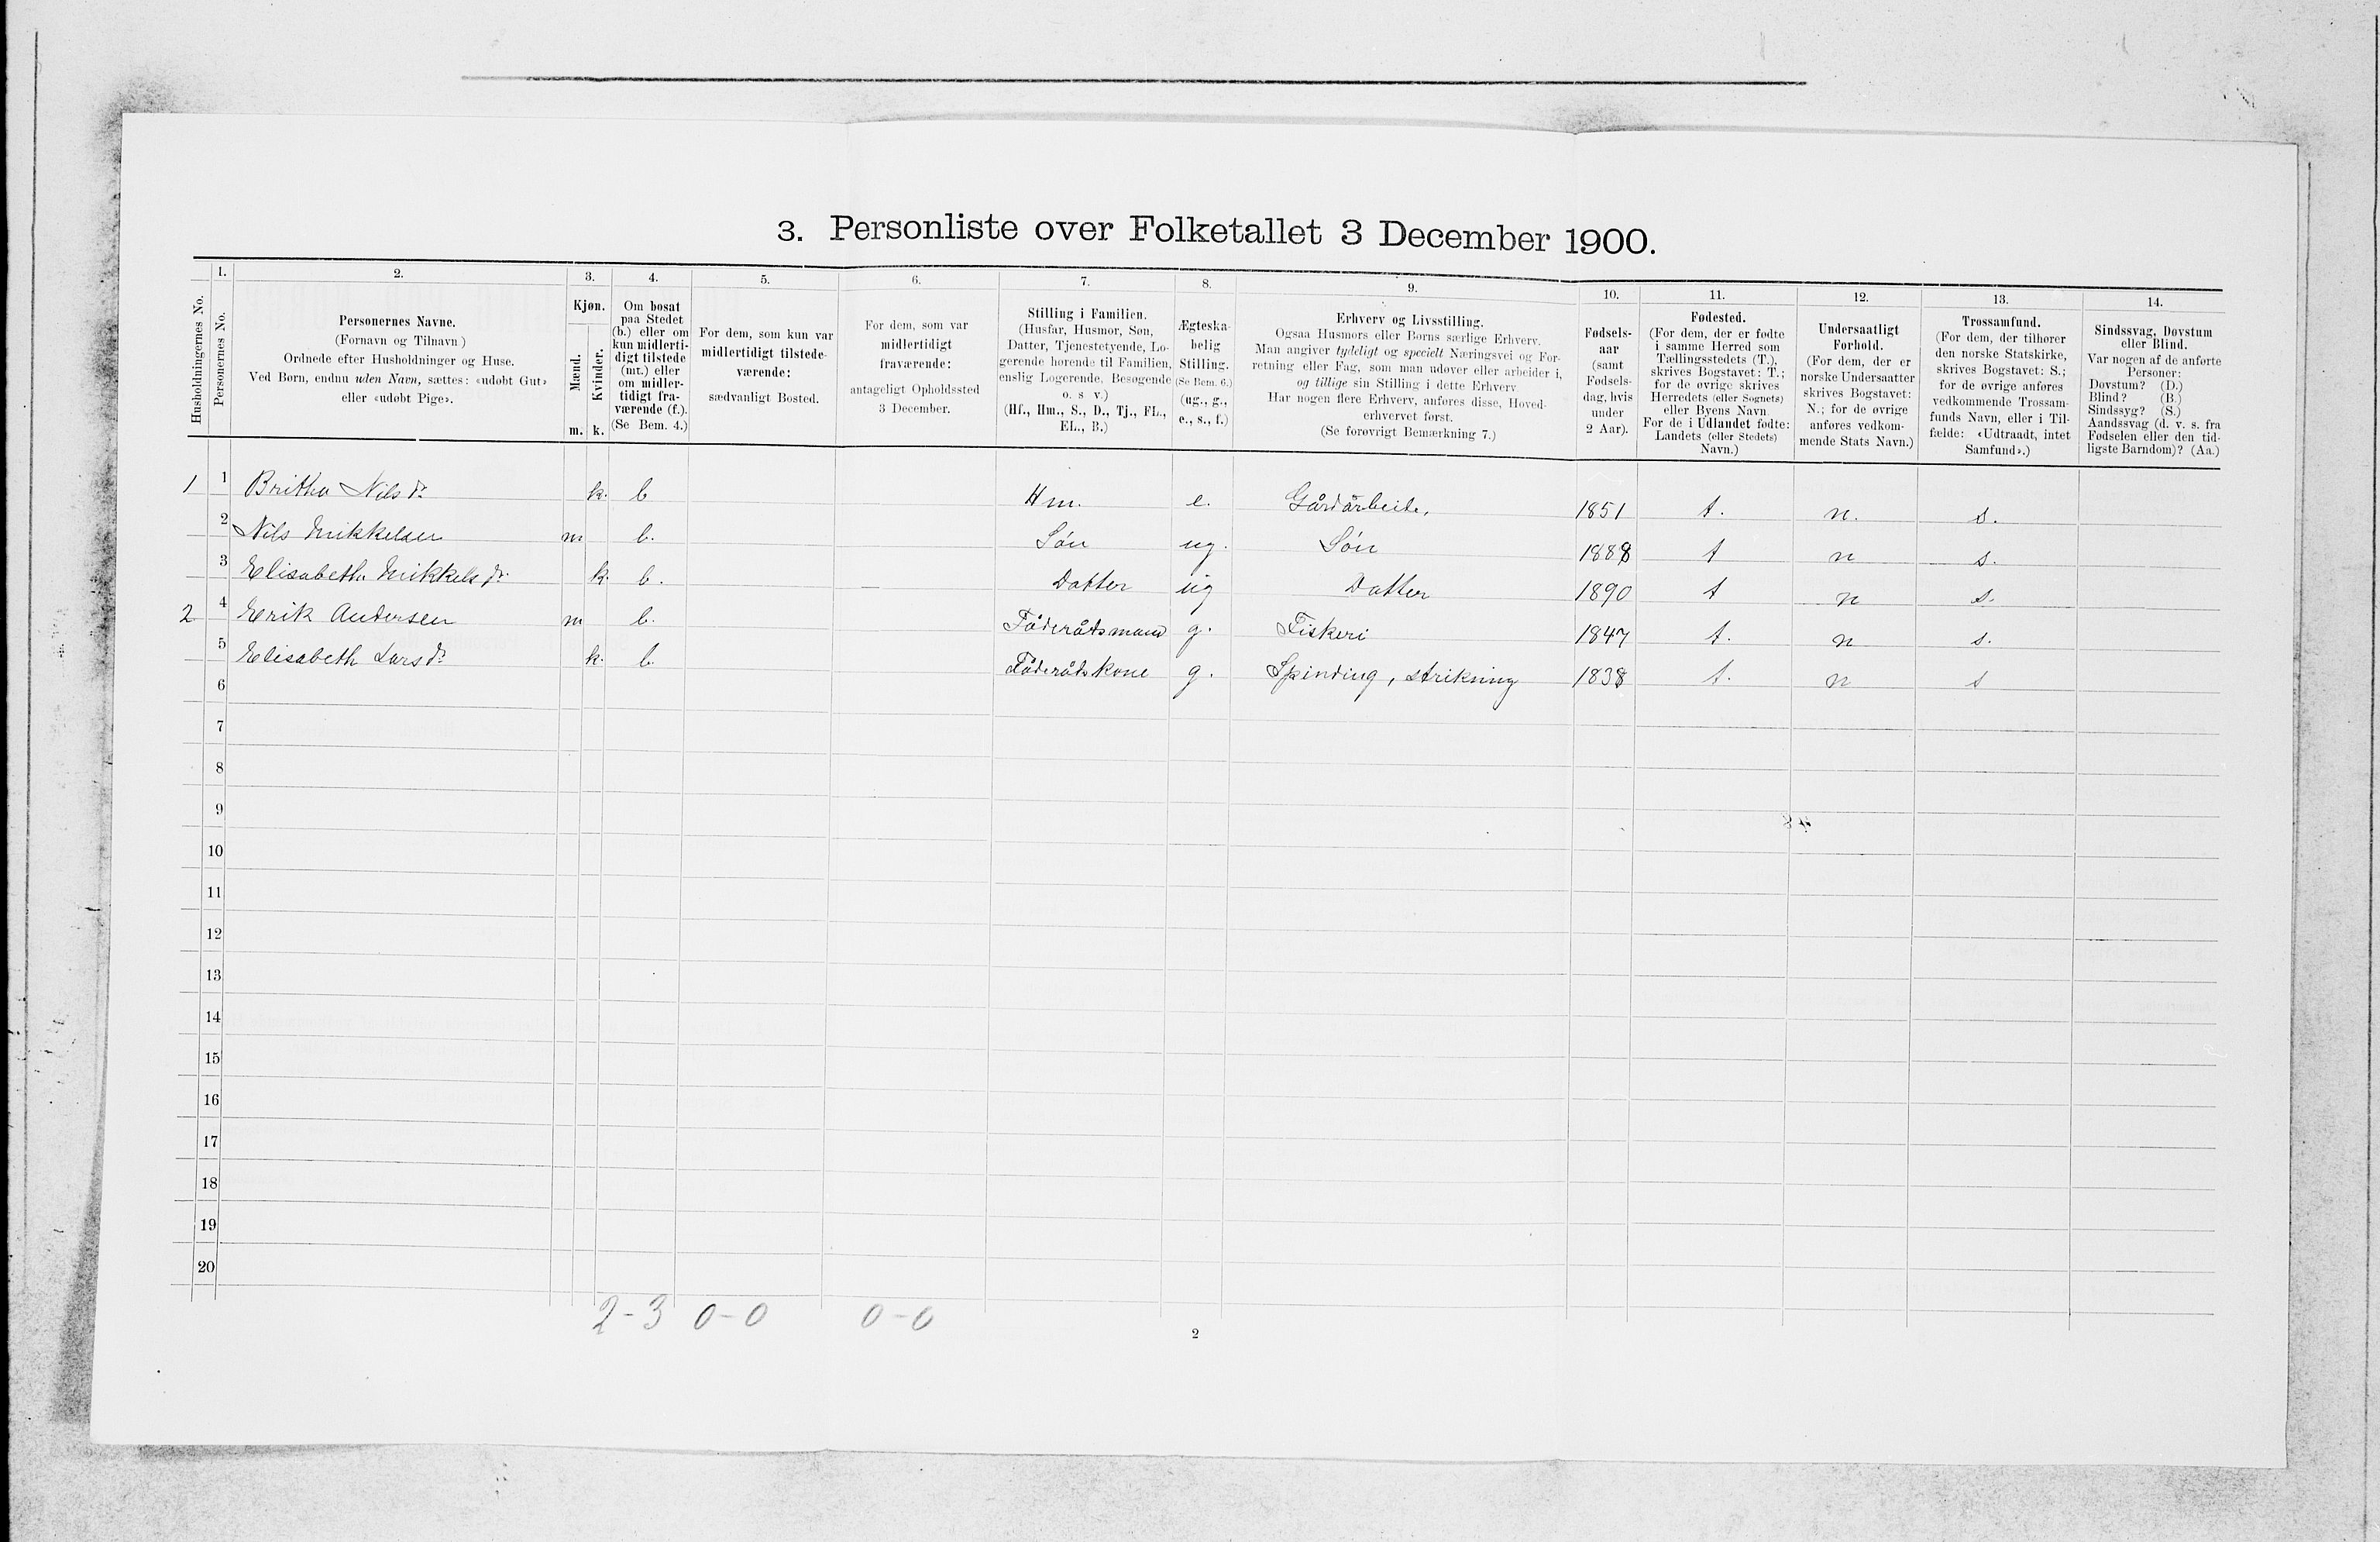 3. Personliste over Folketallet 3 December 1900.
Husholdningernes No.
1.
Personernes No.
2.
Personernes Navne.
(Fornavn og Tilnavn)
Ordnede efter Husholdninger og Huse.
Ved Børn, endnu uden Navn, sættes: «udøbt Gut»
eller «udøbt Pige».
3.
Kjøn.
Mænd.
Kvinder.
m. k.
4.
Om bosat
paa Stedet
(b.) eller om
kun midlerti-
digt tilstede
(mt.) eller
om midler-
tidigt fra-
værende (f.).
(Se Bem. 4.)
5.
For dem, som kun var
midlertidigt tilstede-
værende:
sædvanligt Bosted.
6.
For dem, som var
midlertidigt
fraværende:
antageligt Opholdssted
3 December.
7.
Stilling i Familien.
(Husfar, Husmor, Søn,
Datter, Tjenestetyende, Lo-
gerende hørende til Familien,
enslig Logerende, Besøgende
o. s v.)
(Hf., Hm., S., D., Tj., FL.,
EL., B.)
8.
Ægteska-
belig
Stilling.
(Se Bem. 6.)
(ug., g.,
e., s., f.)
9.
Erhverv og Livsstilling.
Ogsaa Husmors eller Børns særlige Erhverv.
Man angiver tydeligt og specielt Næringsvei og For-
retning eller Fag, som man udøver eller arbeider i,
og tillige sin Stilling i dette Erhverv.
Har nogen flere Erhverv, anføres disse, Hoved-
erhvervet først.
(Se forøvrigt Bemærkning 7.)
10.
Fødsels-
aar
(samt
Fødsels-
dag, hvis
under
2 Aar).
11.
Fødested.
(For dem, der er fødte
i samme Herred som
Tællingsstedets (T.),
skrives Bogstavet: T.;
for de øvrige skrives
Herredets (eller Sognets)
eller Byens Navn.
For de i Udlandet fødte:
Landets (eller Stedets)
Navn.)
12.
Undersaatligt
Forhold.
(For dem, der er
norske Undersaatter
skrives Bogstavet:
N.; for de øvrige
anføres vedkom-
mende Stats Navn.)
13.
Trossamfund.
(For dem, der tilhører
den norske Statskirke,
skrives Bogstavet: S.;
for de øvrige anføres
vedkommende Trossam-
funds Navn, eller i Til-
fælde: «Udtraadt, intet
Samfund».)
14.
Sindssvag, Døvstum
eller Blind.
Var nogen af de anførte
Personer:
Døvstum? (D.)
Blind? (B.)
Sindssyg? (S.)
Aandssvag (d. v. s. fra
Fødselen eller den tid-
ligste Barndom)? (Aa.)
1 1 Britha Nilsdr k. b Hm. e. Gårdårbeide, 1851 t. n. s.
2 Nils Mikkelsen m b. Søn ug. Søn 1888 t n s.
3 Elisabeth Mikkelsdr. k. b. Datter ug Datter 1890 t n s.
2 4 Erik Andersen m b. Føderådsmand g. Fiskeri 1847 t. n s.
5 Elisabeth Larsdr k. b. Føderådskone g. Spinding, strikning 1838 t. n s
6
7
8
9
10
11
12
13
14
15
16
17
18
19
20
2-3 0-0 0-0
2